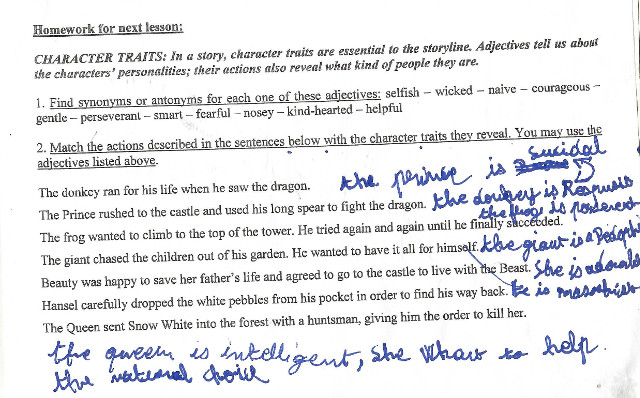 Homework for next lesson:
CHARACTER TRAITS: In a story, character traits are essential to the storyline. Adjectives tell us about
the characters' personalities; their actions also reveal what kind of people they are.
1. Find synonyms or antonyms for each one of these adjectives: selfish – wicked – naive – courageous –
gentle – perseverant – smart – fearful – nosey – kind-hearted – helpful
2. Match the actions described in the sentences below with the character traits they reveal. You may use the
adjectives listed above.
The donkey ran for his life when he saw the dragon. the prince is sucidal
The Prince rushed to the castle and used his long spear to fight the dragon. the donkey is
The frog wanted to climb to the top of the tower. He tried again and again until he finally succeeded. the frog is
The giant chased the children out of his garden. He wanted to have it all for himself. the giant is a
Beauty was happy to save her father's life and agreed to go to the castle to live with the Beast. She is
Hansel carefully dropped the white pebbles from his pocket in order to find his way back. is
The Queen sent Snow White into the forest with a huntsman, giving him the order to kill her.
the queen is intelligent, she to help.
the national choice